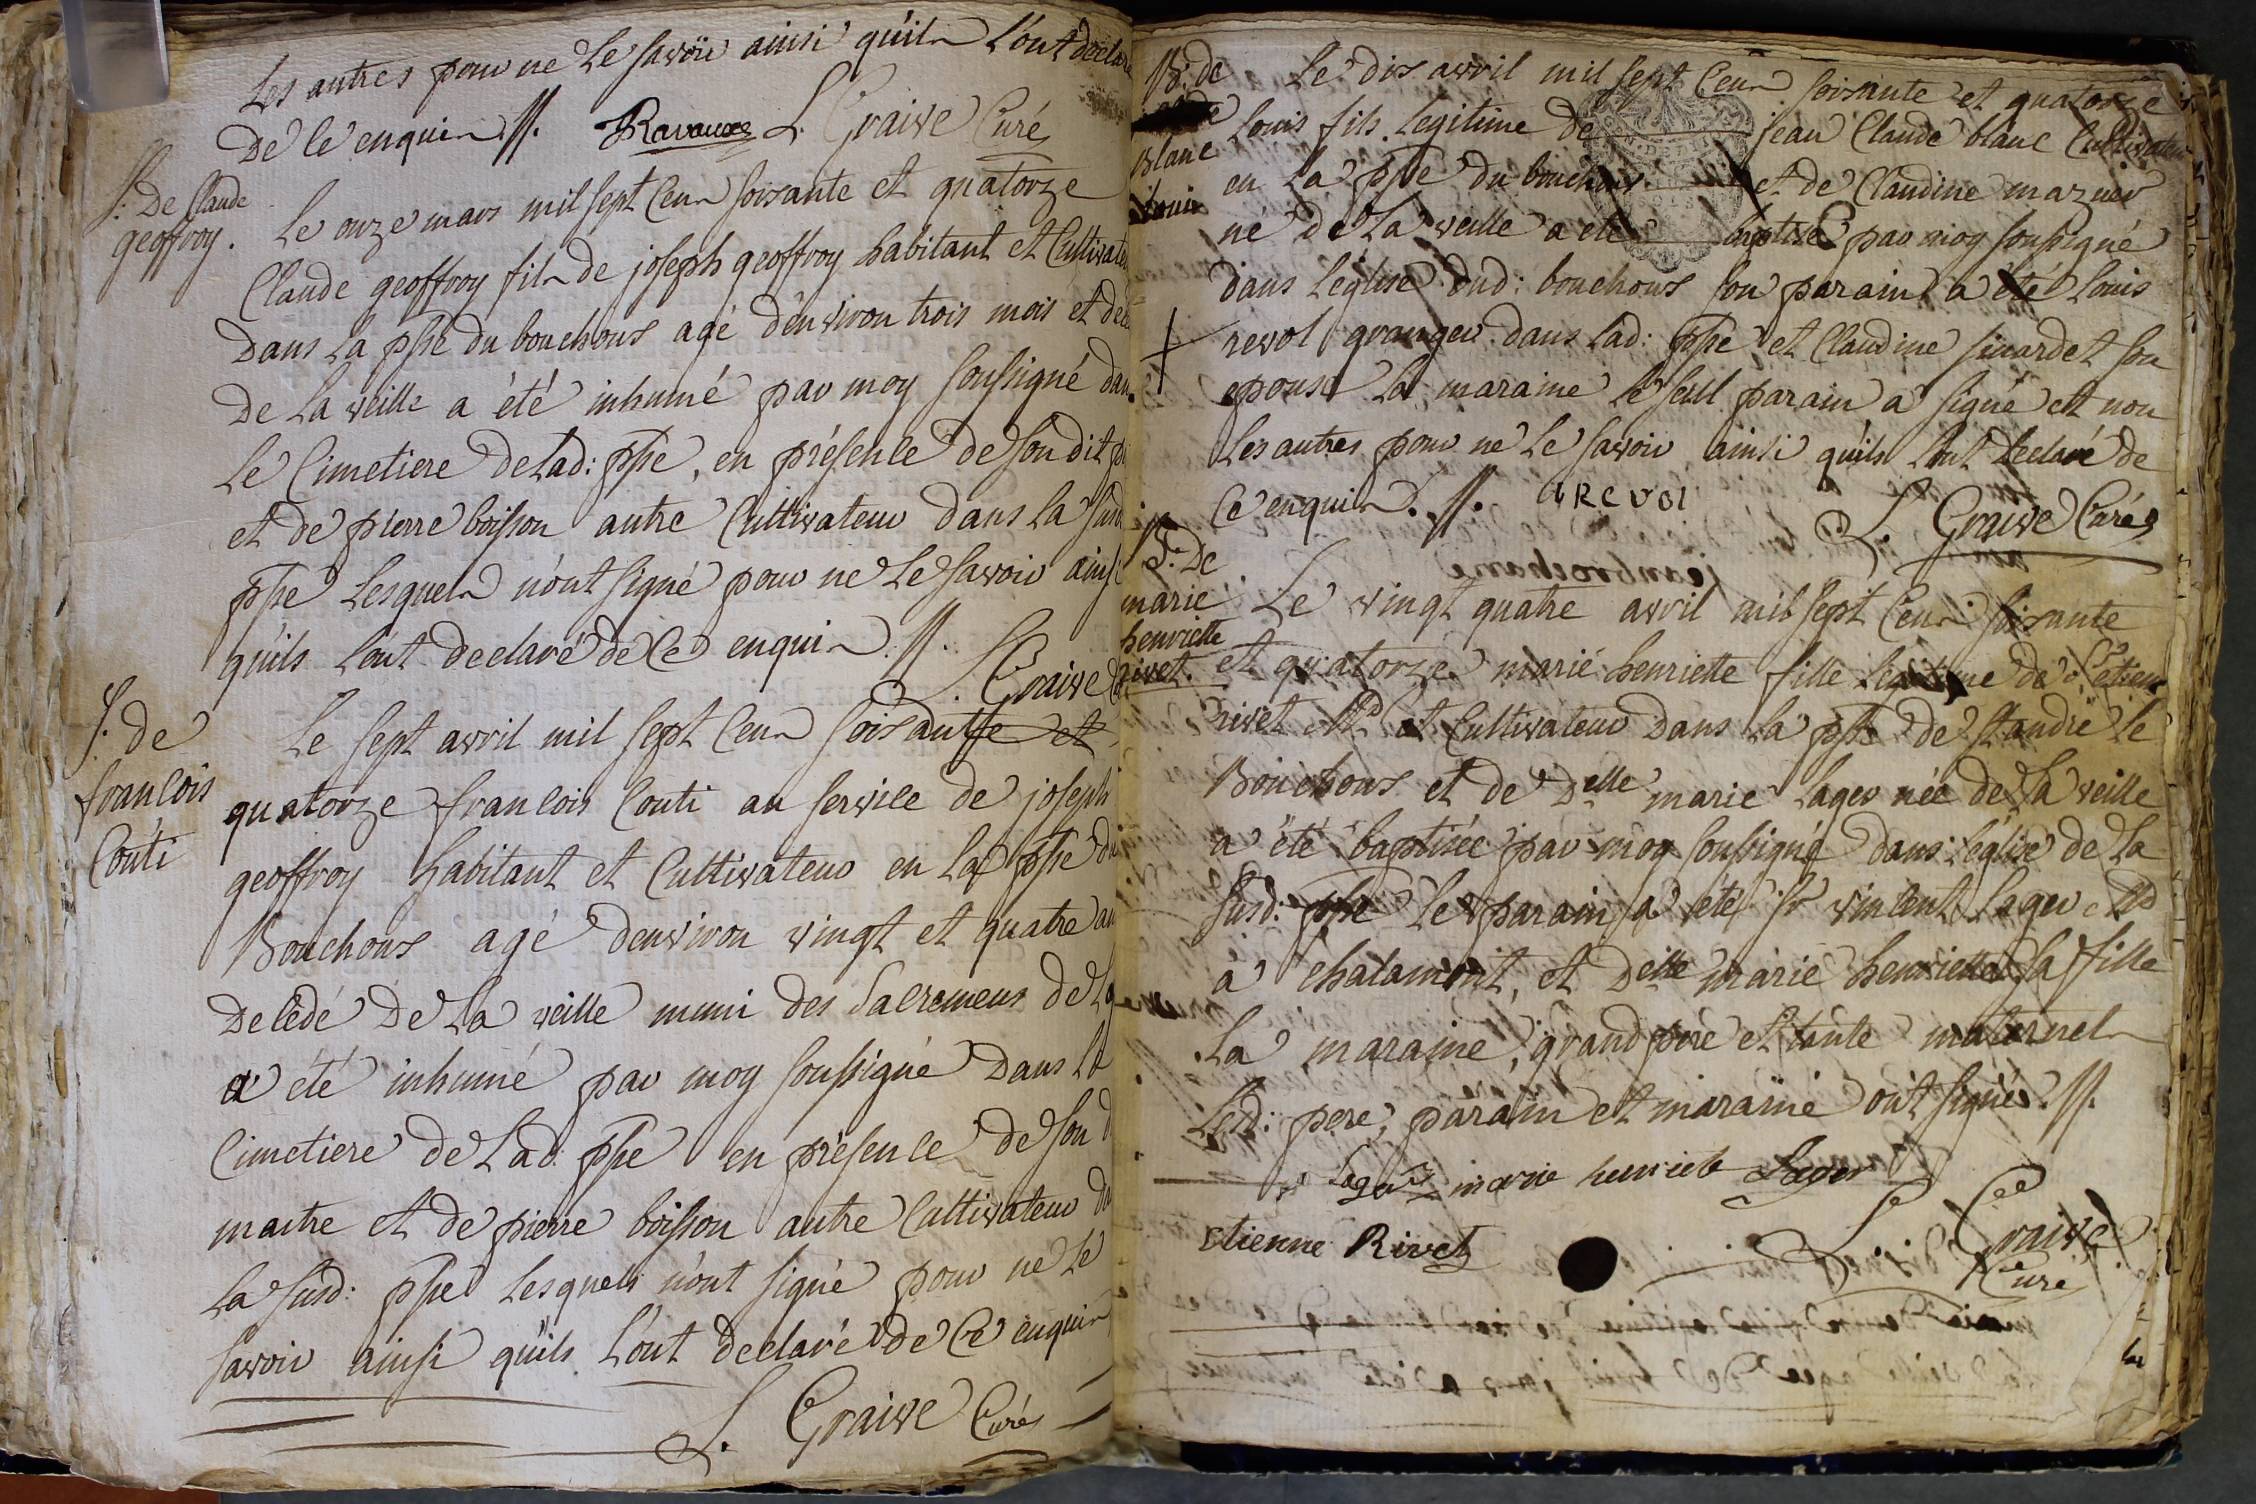 Les autres pour ne le savoir ainsi quils l'ont déclaré
De ce enquis //. Ravaux L. Graive Curé
S. De Claude
geoffroy.
Le onze mars mil sept cens soixante et quatorze
Claude geoffroy fils de joseph geoffroy habitant et Cultivate
Dans la psse du bouchoux agé d'environ trois mois et de
De la veille a été inhumé par moy soussigné dan
le Cimetiere de lad: psse, en présence de son dit p
et de pierre boisson autre Cultivateur dans la sus
psse lesquels n'ont signé pour ne le savoir ainsi
quils l'ont declaré de ce enquis //.
L. Graive
S. de
francois
Couti
Le sept avril mil sept cens soixante et
quatorze francois Couti au service de joseph
geoffroy habitant et Cultivateur en la psse du
Bouchoux agé denviron vingt et quatre an
Decédé De la veille muni des Sacremens de l
a été inhumé par moy soussigné Dans le
Cimetiere de Lad: psse en présence de son d
maitre et de pierre boisson autre Cultivateur d
la susd: psse lesquels n'ont signé pour ne le
savoir ainsi quils l'ont declaré de ce enquis
L. Graive Curé
B. de
Blanc
Louis
Le dix avril mil sept cens soixante et quatorze
Louis fils legitime de jean Claude blanc Cultivateur
en la psse du bouchoux et de Claudine mazuir
né de la veille a été baptisé par moy soussigné
dans l'église dud: bouchoux son parain a été louis
revol granger dans lad: psse et Claudine sicardet son
epouse la maraine le seul parain a signé et non
les autres pour ne le savoir ainsi quils l'ont declaré de
Ce enquis. //. REVOl
L. Graive Curé
B. De
marie
henriette
rivet.
Le vingt quatre avril mil sept cens soixante
et quatorze marie henriette fille legitime de Sr etien
rivet Md et Cultivateur Dans la psse de st andré le
Bouchoux et de Delle marie lager née de la veille
a été baptisée par moy soussigné dans l'église de la
susd: psse le parain a été sr vincent lager Md
a chalamont, et Delle marie henriette sa fille
la maraine, grand pere et tante maternels
lesd: pere, parain et maraine ont signé. //.
Lager marie henriete Lager
etienne Rivet
L. Graive
Curé